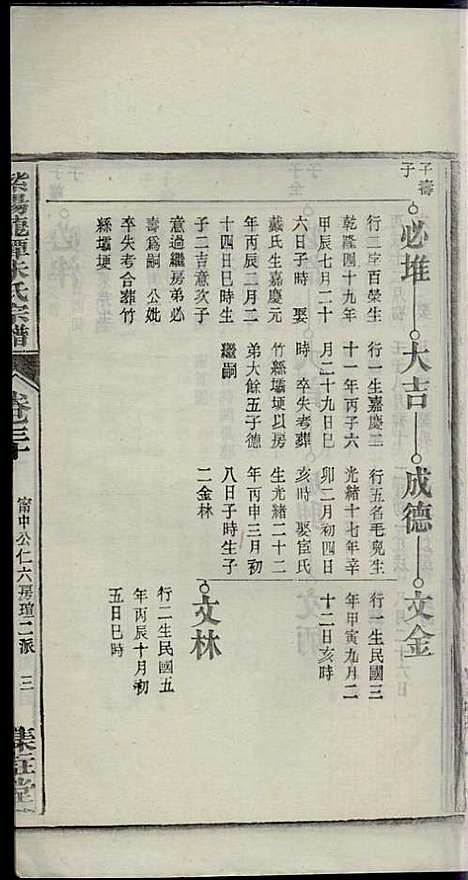 子壽
子
必堆
行三字百榮生
乾隆四十九年
甲辰七月二十
六日子時　娶
戴氏生嘉慶元
年丙辰二月二
十四日巳時生
子二吉意次子
意過繼房弟必
壽爲嗣　公妣
卒失考合葬竹
縣壩埂
大吉
行一生嘉慶二
十一年丙子六
月二十九日巳
時　卒失考葬
竹縣壩埂以房
弟大餘五子德
繼嗣
成德
行五名毛兒生
光緒十七年辛
卯二月初四日
亥時　娶宦氏
生光緒二十二
年丙申三月初
八日子時生子
二金林
文金
行一生民國三
年甲寅九月二
十二日亥時
文林
行二生民國五
年丙辰十月初
五日巳時
紫陽龍潭朱氏宗譜
卷三十
甯中公仁六房瑄二派
三
堂